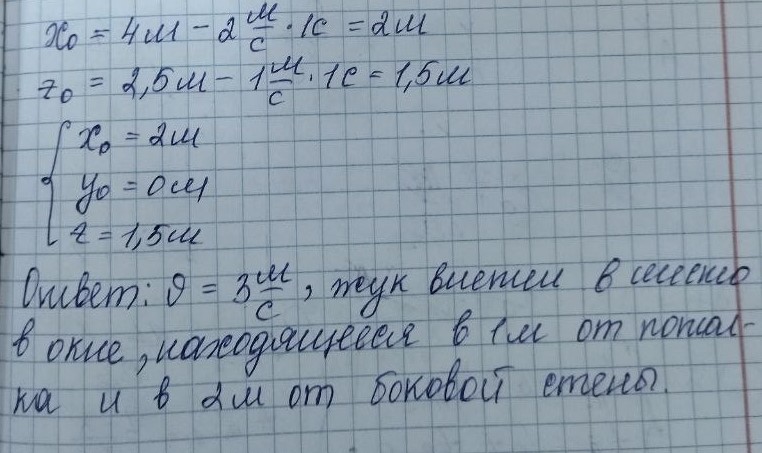 x₀ = 4м − 2 м/с · 1с = 2м
z₀ = 2,5м − 1 м/с · 1с = 1,5м
{ x₀ = 2м
y₀ = 0м
z = 1,5м
Ответ: υ = 3 м/с, жук влетел в место
в окне, находящееся в 1м от потол-
ка и в 2м от боковой стены.